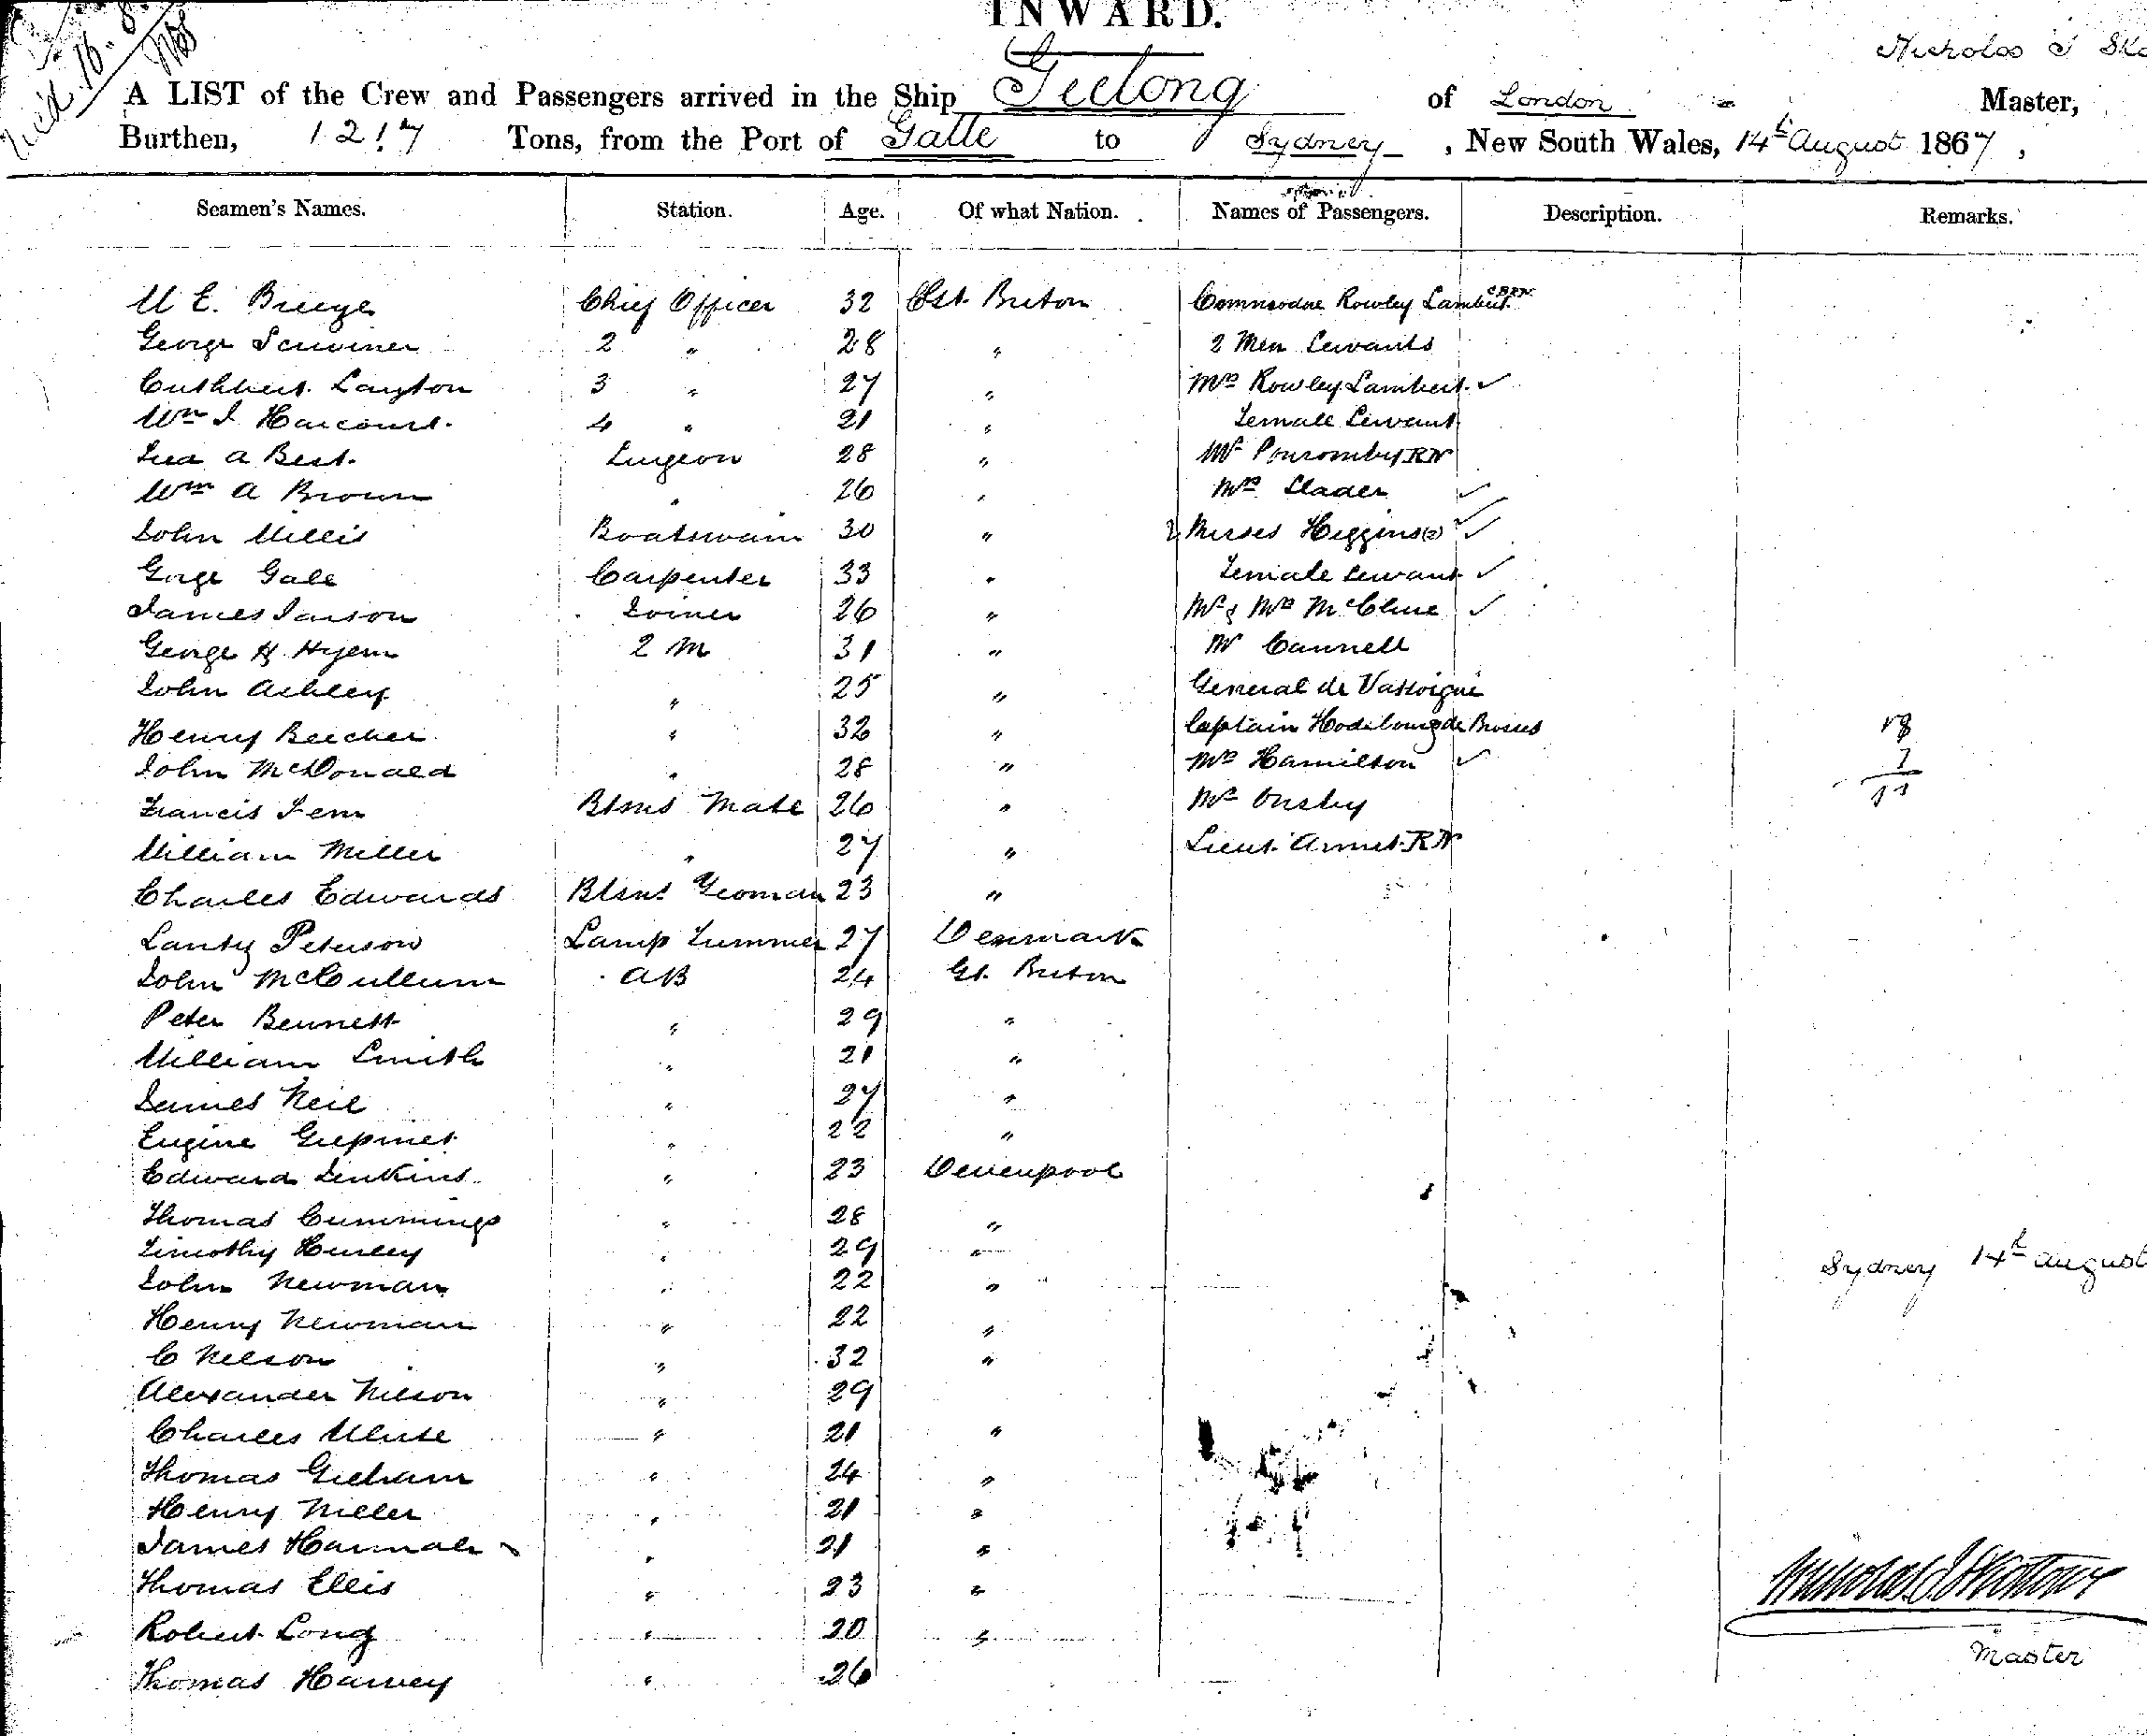 INWARD.
Nicholas J
A LIST of the Crew and Passengers arrived in the Ship Geelong of London Master,
Burthen, 1217 Tons, from the Port of Galle to Sydney, New South Wales, 14th August 1867,
Seamen's Names. Station. Age. Of what Nation. Names of Passengers. Description. Remarks.
W E. Chief Officer 32 Gt. Briton Commodore Rowley Lambert CBRN
George Scriviner 2 " 28 " 2 Men Servants
Cuthbert Layton 3 " 27 " Mrs Rowley Lambert ✓
Wm J. Harcourt 4 " 21 " Female Servant
A Best Surgeon 28 " Mr Ponsonby RN
Wm A Brown " 26 " Mrs Slader ✓
John Willis Boatswain 30 " 2 Misses Higgins (2) ✓
Gorge Gale Carpenter 33 " Female Servant ✓
James Joiner 26 " Mr & Mrs McClure ✓
George H. Hyem 2 M 31 " Mr Cannell
John Ashley " 25 " General de Vassoigne
Henry Beecher " 32 " Captain de Brosses
John McDonald " 28 " Mrs Hamilton ✓
Francis Fenn Btsns Mate 26 " Mr Onsley
William Miller " 27 " Lieut. RN
Charles Edwards Btsns Yeoman 23 "
Lantz Peterson Lamp Trimmer 27 Denmark
John McCullum AB 24 Gt. Briton
Peter Bennett " 29 "
William Smith " 21 "
James Neil " 27 "
Eugine " 22 "
Edward Jenkins " 23 Devenpool
Thomas Cummings " 28 "
Timothy Hurley " 29 "
Sydney 14th August
John Newman " 22 "
Henry Newman " 22 "
C Nelson " 32 "
Alexander Nilson " 29
Charles White " 21 "
Thomas Graham " 24 "
Henry Miller " 21 "
James Hannah " 21 "
Thomas Ellis " 23 "
Robert Long " 20 "
Master
Thomas Harvey " 26